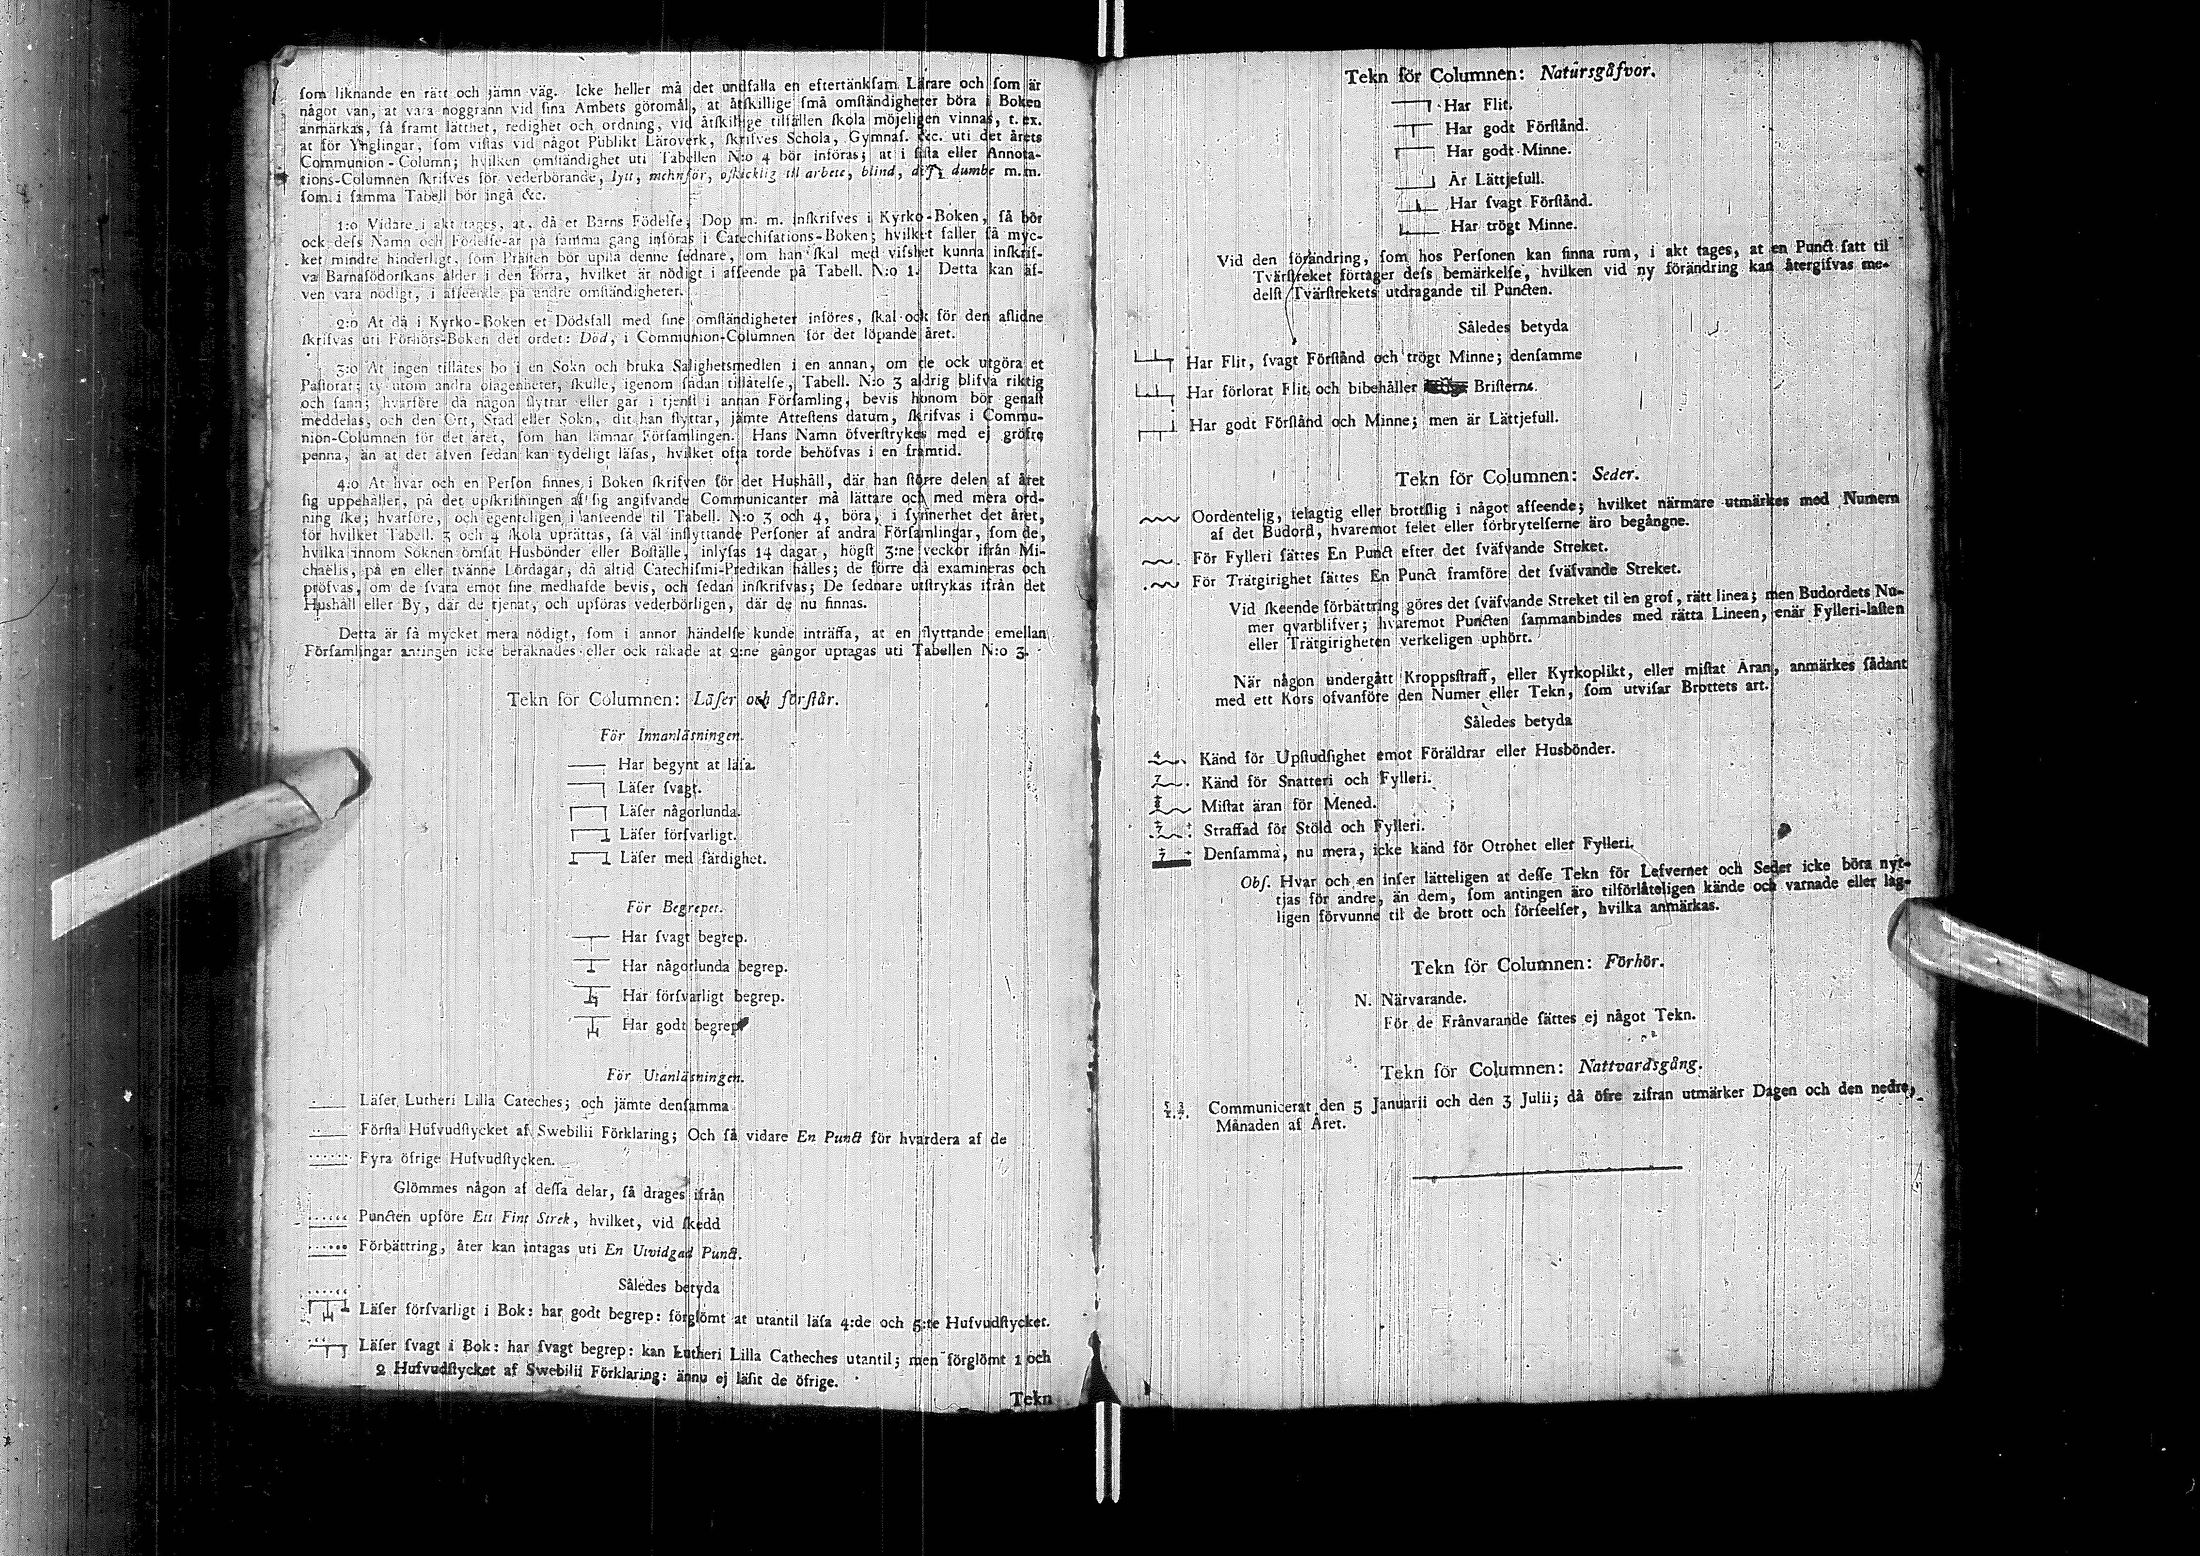 ſom liknande en rätt och jämn väg. Icke heller må det undfalla en eftertänkſam Lärare och ſom är
något van, at vara noggrann vid ſina Ambets göromål, at åtſkillige ſmå omſtändigheter böra i Boken
anmärkas, ſå framt lätthet, redighet och ordning, vid åtſkillige tilfällen ſkola möjeligen vinnas, t. ex.
at för Ynglingar, ſom viſtas vid något Publikt Läroverk, ſkrifves Schola, Gymnaſ. &c. uti det årets
Communion-Column; hvilken omſtändighet uti Tabellen N:o 4 bör införas; at i ſiſta eller Annota-
tions-Columnen ſkrifves för vederbörande, lytt, mehnför, oſkicklig til arbete, blind, döf, dumbe m.m.
ſom i ſamma Tabell bör ingå &c.
1:o Vidare i akt tages, at, då et Barns Födelſe, Dop m. m. inſkrifves i Kyrko-Boken, ſå bör
ock deſs Namn och Födelſe-år på ſamma gång införas i Catechiſations-Boken; hvilket faller ſå myc-
ket mindre hinderligt, ſom Präſten bör upſlå denne ſednare, om han ſkal med viſshet kunna inſkrif-
va Barnaföderſkans ålder i den förra, hvilket är nödigt i afſeende på Tabell. N:o 1. Detta kan äf-
ven vara nödigt, i afſeende på andre omſtändigheter.
2:o At då i Kyrko-Boken et Dödsfall med ſine omſtändigheter införes, ſkal ock för den aflidne
ſkrifvas uti Förhörs-Boken det ordet: Död, i Communion-Columnen för det löpande året.
3:o At ingen tillåtes bo i en Sokn och bruka Salighetsmedlen i en annan, om de ock utgöra et
Paſtorat; ty utom andra olägenheter, ſkulle, igenom ſådan tillåtelſe, Tabell. N:o 3 aldrig blifva riktig
och ſann; hvarföre då någon flyttar eller går i tjenſt i annan Förſamling, bevis honom bör genaſt
meddelas, och den Ort, Stad eller Sokn, dit han flyttar, jämte Atteſtens datum, ſkrifvas i Commu-
nion-Columnen för det året, ſom han lämnar Förſamlingen. Hans Namn öfverſtrykes med ej gröfre
penna, än at det äfven ſedan kan tydeligt läſas, hvilket ofta torde behöfvas i en framtid.
4:o At hvar och en Perſon finnes i Boken ſkrifven för det Hushåll, där han ſtörre delen af året
ſig uppehåller, på det upſkrifningen af ſig angifvande Communicanter må lättare och med mera ord-
ning ſke; hvarföre, och egenteligen i anſeende til Tabell. N:o 3 och 4, böra, i ſynnerhet det året,
för hvilket Tabell. 3 och 4 ſkola uprättas, ſå väl inflyttande Perſoner af andra Förſamlingar, ſom de,
hvilka innom Soknen omſat Husbönder eller Boſtälle, inlyſas 14 dagar, högſt 3:ne veckor ifrån Mi-
chaëlis, på en eller tvänne Lördagar, då altid Catechiſmi-Predikan hålles; de förre då examineras och
pröfvas, om de ſvara emot ſine medhafde bevis, och ſedan inſkrifvas; De ſednare utſtrykas ifrån det
Hushåll eller By, där de tjenat, och upföras vederbörligen, där de nu finnas.
Detta är ſå mycket mera nödigt, ſom i annor händelſe kunde inträffa, at en flyttande emellan
Förſamlingar antingen icke beräknades eller ock råkade at 2:ne gångor uptagas uti Tabellen N:o 3.
Tekn för Columnen: Läſer och förſtår.
För Innanläsningen.
Har begynt at läſa.
Läſer ſvagt.
Läſer någorlunda.
Läſer förſvarligt.
Läſer med färdighet.
För Begrepet.
Har ſvagt begrep.
Har någorlunda begrep.
Har förſvarligt begrep.
Har godt begrep
För Utanläsningen.
Läſer Lutheri Lilla Cateches; och jämte denſamma
Förſta Hufvudſtycket af Swebilii Förklaring; Och ſå vidare En Punct för hvardera af de
Fyra öfrige Hufvudſtycken.
Glömmes någon af deſſa delar, ſå drages ifrån
Puncten upföre Ett Fint Strek, hvilket, vid ſkedd
Förbättring, åter kan intagas uti En Utvidgad Punct.
Således betyda
Läſer förſvarligt i Bok: har godt begrep: förglömt at utantil läſa 4:de och 5:te Hufvudſtycket.
Läſer ſvagt i Bok: har ſvagt begrep: kan Lutheri Lilla Catheches utantil; men förglömt 1 och
2 Hufvudſtycket af Swebilii Förklaring: ännu ej läſit de öfrige.
Tekn
Tekn för Columnen: Natursgåfvor.
Har Flit.
Har godt Förſtånd.
Har godt Minne.
Är Lättjefull.
Har ſvagt Förſtånd.
Har trögt Minne.
Vid den förändring, ſom hos Perſonen kan finna rum, i akt tages, at en Punct ſatt til
Tvärſtreket förtager deſs bemärkelſe, hvilken vid ny förändring kan återgifvas me-
delſt Tvärſtrekets utdragande til Puncten.
Således betyda
Har Flit, ſvagt Förſtånd och trögt Minne; denſamme
Har förlorat Flit, och bibehåller Briſterne.
Har godt Förſtånd och Minne; men är Lättjefull.
Tekn för Columnen: Seder.
Oordentelig, felagtig eller brottſlig i något afſeende; hvilket närmare utmärkes med Numern
af det Budord, hvaremot felet eller förbrytelſerne äro begångne.
För Fylleri ſättes En Punct efter det ſväfvande Streket.
För Trätgirighet ſättes En Punct framföre det ſväfvande Streket.
Vid ſkeende förbättring göres det ſväfvande Streket til en grof, rätt linea; men Budordets Nu-
mer qvarblifver; hvaremot Puncten ſammanbindes med rätta Lineen, enär Fylleri-laſten
eller Trätgirigheten verkeligen uphört.
När någon undergått Kroppsſtraff, eller Kyrkoplikt, eller miſtat Äran, anmärkes ſådant
med ett Kors ofvanföre den Numer eller Tekn, ſom utviſar Brottets art.
Således betyda
4 Känd för Upſtudſighet emot Föräldrar eller Husbönder.
7 Känd för Snatteri och Fylleri.
8 Miſtat äran för Mened.
7 Straffad för Stöld och Fylleri.
7 Denſamma, nu mera, icke känd för Otrohet eller Fylleri.
Obſ. Hvar och en inſer lätteligen at deſſe Tekn för Lefvernet och Seder icke böra nyt-
tjas för andre, än dem, ſom antingen äro tilförlåteligen kände och varnade eller lag-
ligen förvunne til de brott och förſeelſer, hvilka anmärkas.
Tekn för Columnen: Förhör.
N. Närvarande.
För de Frånvarande ſättes ej något Tekn.
Tekn för Columnen: Nattvardsgång.
5/1. 3/7. Communicerat den 5 Januarii och den 3 Julii; då öfre zifran utmärker Dagen och den nedre,
Månaden af Året.